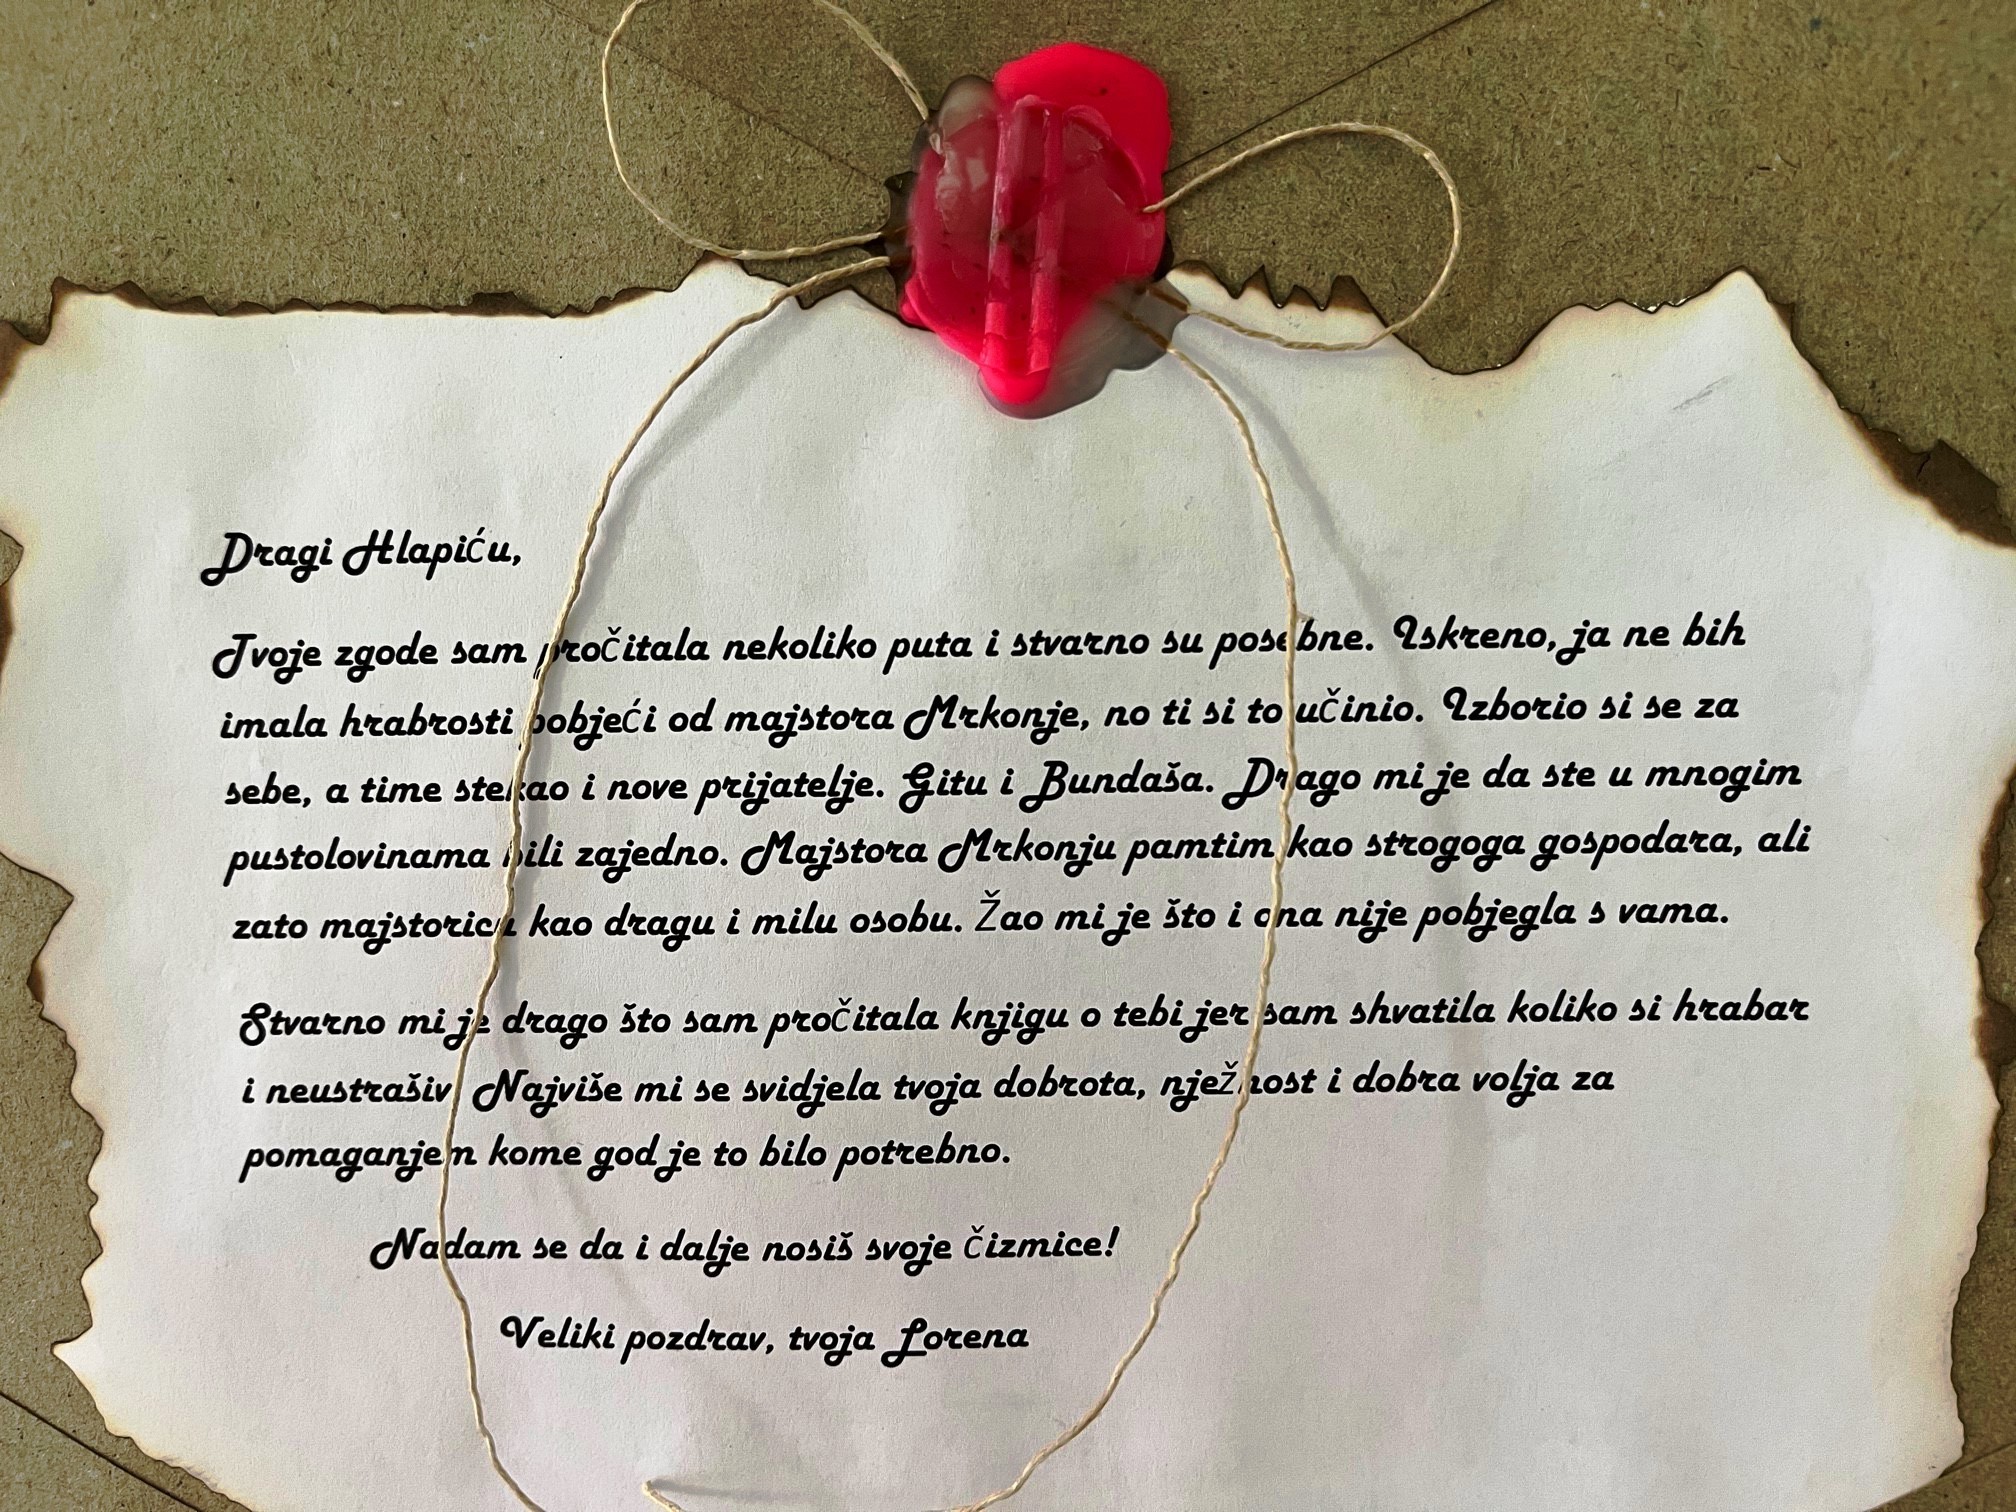 Dragi Hlapiću,
Tvoje zgode sam pročitala nekoliko puta i stvarno su posebne. Iskreno, ja ne bih
imala hrabrosti pobjeći od majstora Mrkonje, no ti si to učinio. Izborio si se za
sebe, a time stekao i nove prijatelje. Gitu i Bundaša. Drago mi je da ste u mnogim
pustolovinama bili zajedno. Majstora Mrkonju pamtim kao strogoga gospodara, ali
zato majstoricu kao dragu i milu osobu. Žao mi je što i ona nije pobjegla s vama.
Stvarno mi je drago što sam pročitala knjigu o tebi jer sam shvatila koliko si hrabar
i neustrašiv. Najviše mi se svidjela tvoja dobrota, nježnost i dobra volja za
pomaganjem kome god je to bilo potrebno.
Nadam se da i dalje nosiš svoje čizmice!
Veliki pozdrav, tvoja Lorena